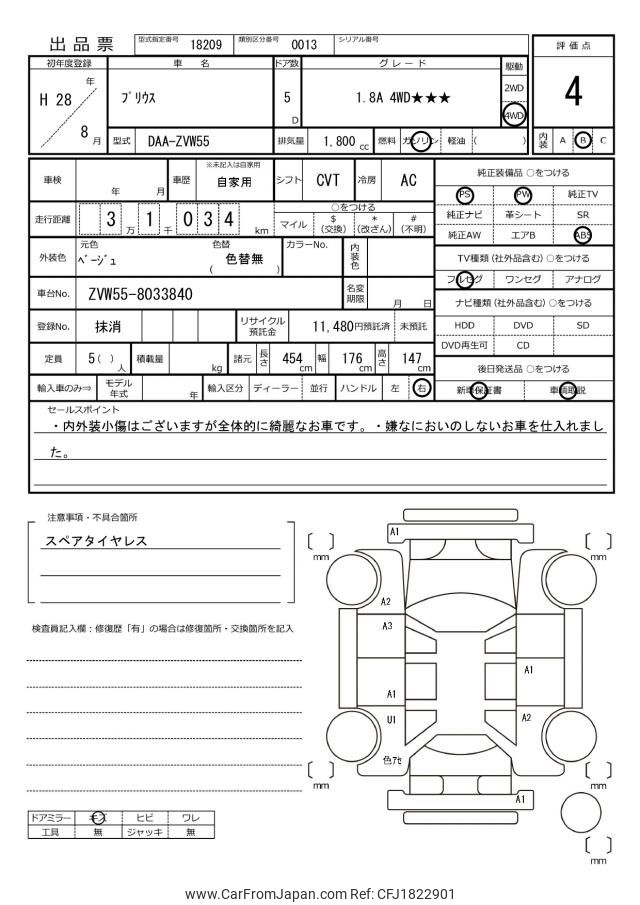 出品票
型式指定番号 18209 類別区分番号 0013 シリアル番号
評価点
4
初年度登録 車名 ドア数 グレード 駆動
H 28 年 8 月
プリウス 5 D 1.8A 4WD★★★ 2WD 4WD
型式 DAA-ZVW55 排気量 1,800 cc 燃料 ガソリン 軽油 ( )
内装 A B C
車検 年 月 車歴 ※未記入は自家用 自家用 シフト CVT 冷房 AC
走行距離 3 1 万 0 千 3 4 km
○をつける
マイル $ (交換) * (改ざん) # (不明)
外装色 元色 ベージュ 色替 ( 色替無 ) カラーNo. 内装色
車台No. ZVW55-8033840 名変期限 月 日
登録No. 抹消 リサイクル預託金 11,480円預託済 未預託
定員 5( ) 人 積載量 kg 諸元 長さ 454 cm 幅 176 cm 高さ 147 cm
輸入車のみ⇒ モデル年式 年 輸入区分 ディーラー 並行 ハンドル 左 右
純正装備品 ○をつける
PS PW 純正TV
純正ナビ 革シート SR
純正AW エアB ABS
TV種類(社外品含む) ○をつける
フルセグ ワンセグ アナログ
ナビ種類(社外品含む) ○をつける
HDD DVD SD
DVD再生可 CD
後日発送品 ○をつける
新車保証書 車輌取説
セールスポイント
・内外装小傷はございますが全体的に綺麗なお車です。・嫌なにおいのしないお車を仕入れまし
た。
注意事項・不具合箇所
スペアタイヤレス
検査員記入欄：修復歴「有」の場合は修復箇所・交換箇所を記入
A1
mm
mm
A2
A3
A1
A1
U1
A2
色アセ
mm
mm
A1
mm
ドアミラー キズ ヒビ ワレ
工具 無 ジャッキ 無
www.CarFromJapan.com Ref: CFJ1822901